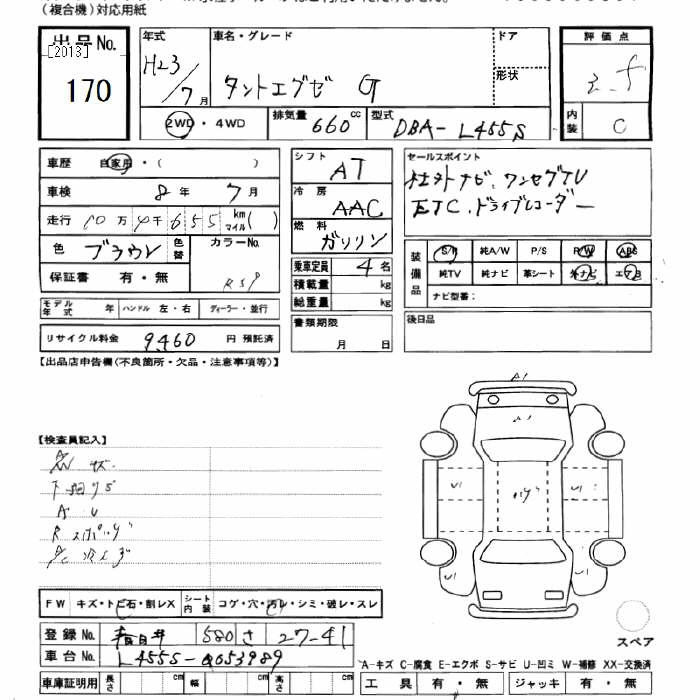 (複合機)対応用紙
出品No.
[2013]
170
年式
H23/7月
車名・グレード
タントエグゼ G
ドア
形状
評価点
3.5
内装
C
2WD・4WD
排気量 660 cc
型式 DBA-L455S
車歴 自家用・( )
車検 8年 7月
走行 10万4千655 km マイル( )
色 ブラウン
色替
カラーNo.
保証書 有・無
モデル年式 年 ハンドル 左・右 ディーラー・並行
リサイクル料金 9460 円 預託済
シフト AT
冷房 AAC
燃料 ガソリン
乗車定員 4名
積載量 kg
総重量 kg
書類期限
月 日
セールスポイント
社外ナビ、ワンセグTV
ETC、ドライブレコーダー
装備品
S/R 純A/W P/S P/W ABS
純TV 純ナビ 革シート 外ナビ エアB
ナビ型番:
後日品
【出品店申告欄(不良箇所・欠品・注意事項等)】
【検査員記入】
FW キズ・トビ石・割レX シート内装 コゲ・穴・汚レ・シミ・破レ・スレ
登録No. 春日井 580 さ 27-41
車台No. L455S-0053989
車庫証明用 長さ cm 幅 cm 高さ cm
A1
スペア
A-キズ C-腐食 E-エクボ S-サビ U-凹ミ W-補修 XX-交換済
工具 有・無 ジャッキ 有・無